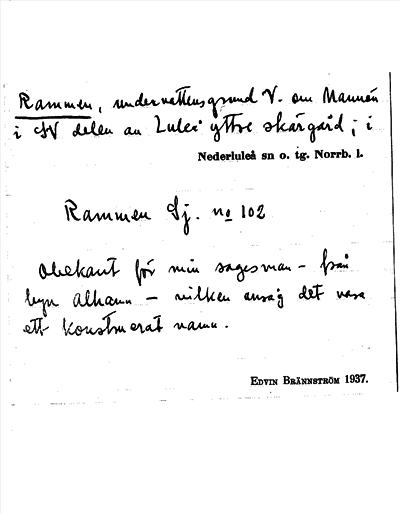 Rammen, undervattensgrund V. om Mannön
i SV delen av Luleå yttre skärgård; i
Nederluleå sn o. tg. Norrb. l.
Rammen Sj. no 102
Obekant för min sagesman – från
byn Alhamn – vilken ansåg det vara
ett konstruerat namn.
EDVIN BRÄNNSTRÖM 1937.